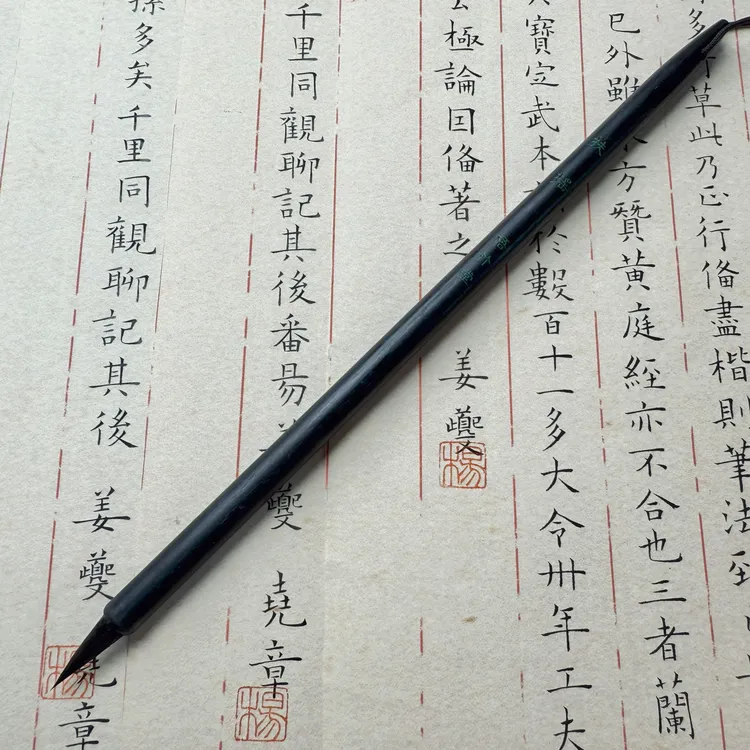 草此乃正行俻盡楷則筆法到
巳外雖方贊黄庭經亦不合也三者蘭
寶定武本於數百十一多大令卅年工夫
極論囙俻著之
姜夔
楊
千里同觀聊記其後番昜
夔
堯章
楊
孫多矣千里同觀聊記其後
姜夔
堯章
楊